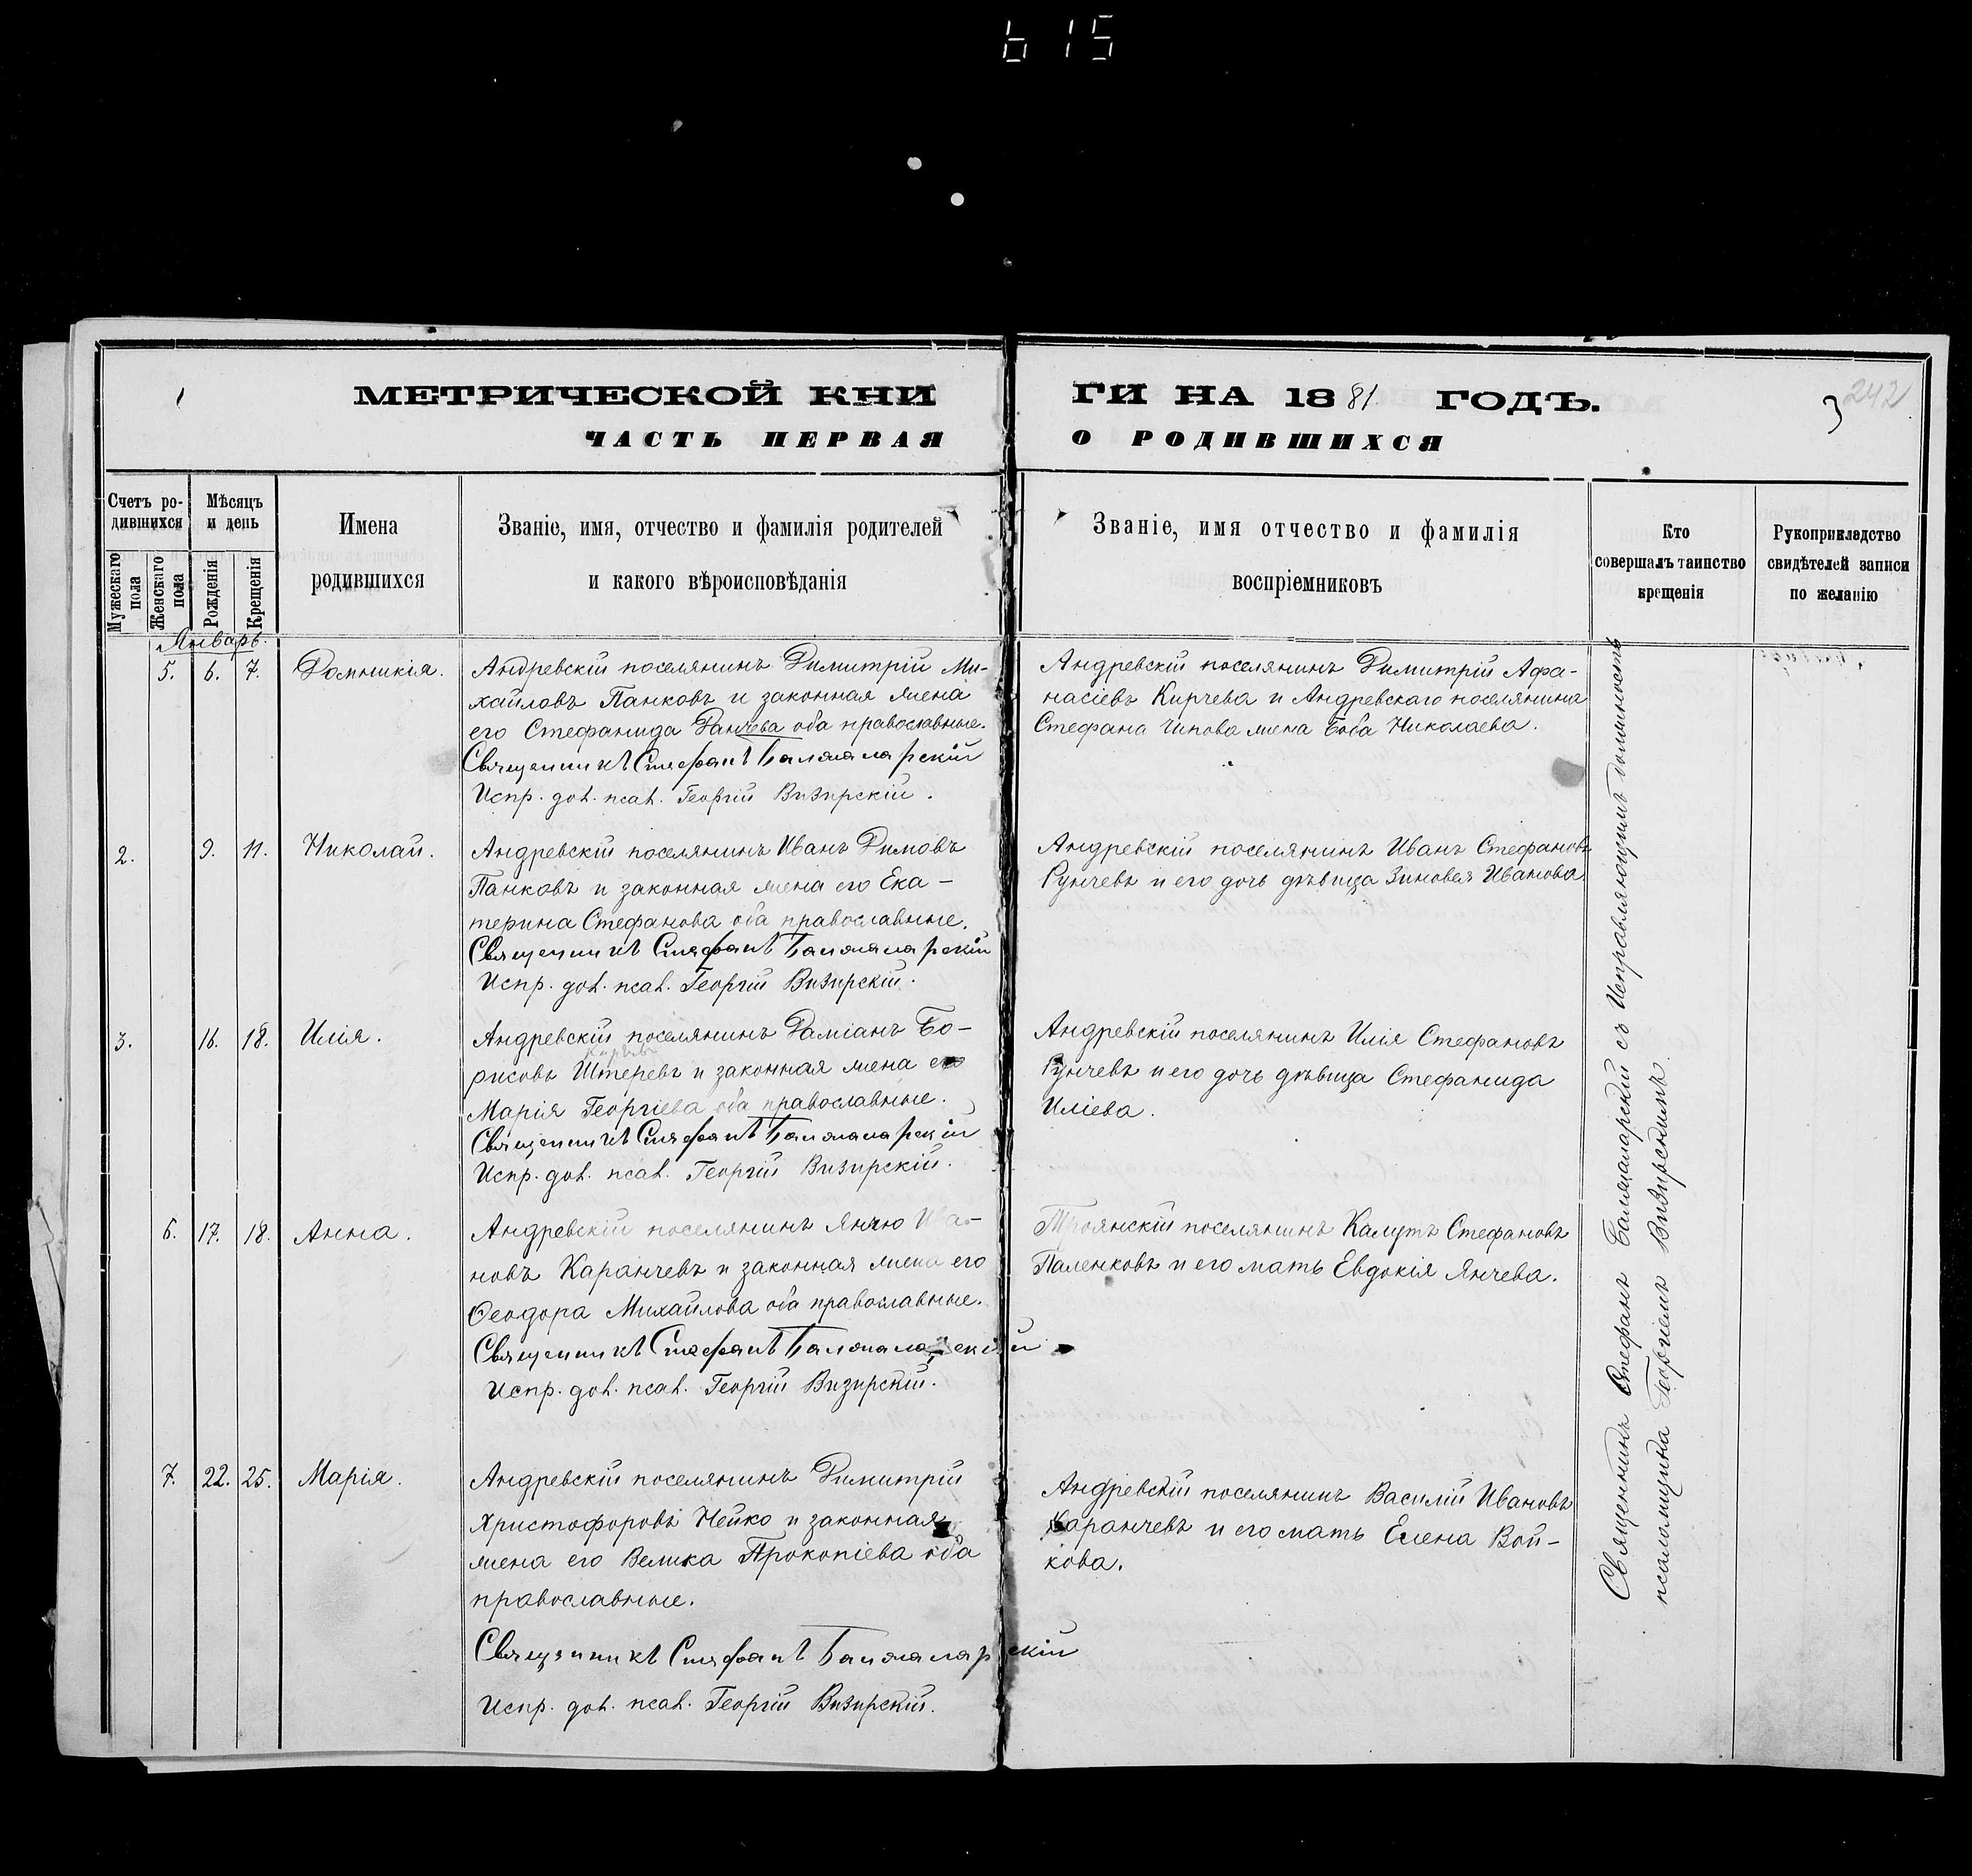 615
МЕТРИЧЕСКОЙ КНИ
ЧАСТЬ ПЕРВАЯ
ГИ НА 1881 ГОДЪ.
О РОДИВШИХСЯ
3
242
Счетъ ро-
дившихся
Мѣсяцъ
и день
Мужескаго
пола
Женскаго
пола
Рожденія
Крещенія
Имена
родившихся
Званіе, имя, отчество и фамилія родителей
и какого вѣроисповѣданія
Званіе, имя отчество и фамилія
воспріемниковъ
Кто
совершалъ таинство
крещенія
Рукоприкладство
свидѣтелей записи
по желанію
Январь
5. 6. 7. Домникія.
Андревскій поселянинъ Димитрій Ми-
хайловъ Панковъ и законная жена
его Стефанида Данчева оба православные.
Священникъ Стефанъ Балжаларскій
Испр. дол. псал. Георгій Визирскій.
Андревскій поселянинъ Димитрій Афа-
насіевъ Кирчева и Андревскаго поселянина
Стефана Чипова жена Боба Николаева.
2. 9. 11. Николай.
Андревскій поселянинъ Иванъ Димовъ
Панковъ и законная жена его Ека-
терина Стефанова оба православные.
Священникъ Стефанъ Балжаларскій
Испр. дол. псал. Георгій Визирскій.
Андревскій поселянинъ Иванъ Стефановъ
Рунчевъ и его дочь дѣвица Зиновея Иванова.
3. 16. 18. Илія.
Андревскій поселянинъ Даміанъ Бо-
рисовъ Штеревъ и законная жена его
Марія Георгіева оба православные.
Священникъ Стефанъ Балжаларскій
Испр. дол. псал. Георгій Визирскій.
Андревскій поселянинъ Илія Стефановъ
Рунчевъ и его дочь дѣвица Стефанида
Иліева.
6. 17. 18. Анна.
Андревскій поселянинъ Янчо Ива-
новъ Каранчевъ и законная жена его
Ѳеодора Михайлова оба православные.
Священникъ Стефанъ Балжаларскій
Испр. дол. псал. Георгій Визирскій.
Троянскій поселянинъ Калутъ Стефановъ
Паленковъ и его мать Евдокія Янчева.
7. 22. 25. Марія.
Андревскій поселянинъ Димитрій
Христофоровъ Нейко и законная
жена его Велика Прокопіева оба
православные.
Священникъ Стефанъ Балжаларскій
Испр. дол. псал. Георгій Визирскій.
Андревскій поселянинъ Василій Ивановъ
Каранчевъ и его мать Елена Вой-
кова.
Священникъ Стефанъ Балжаларскій съ Исправляющимъ должность
псаломщика Георгіемъ Визирскимъ.